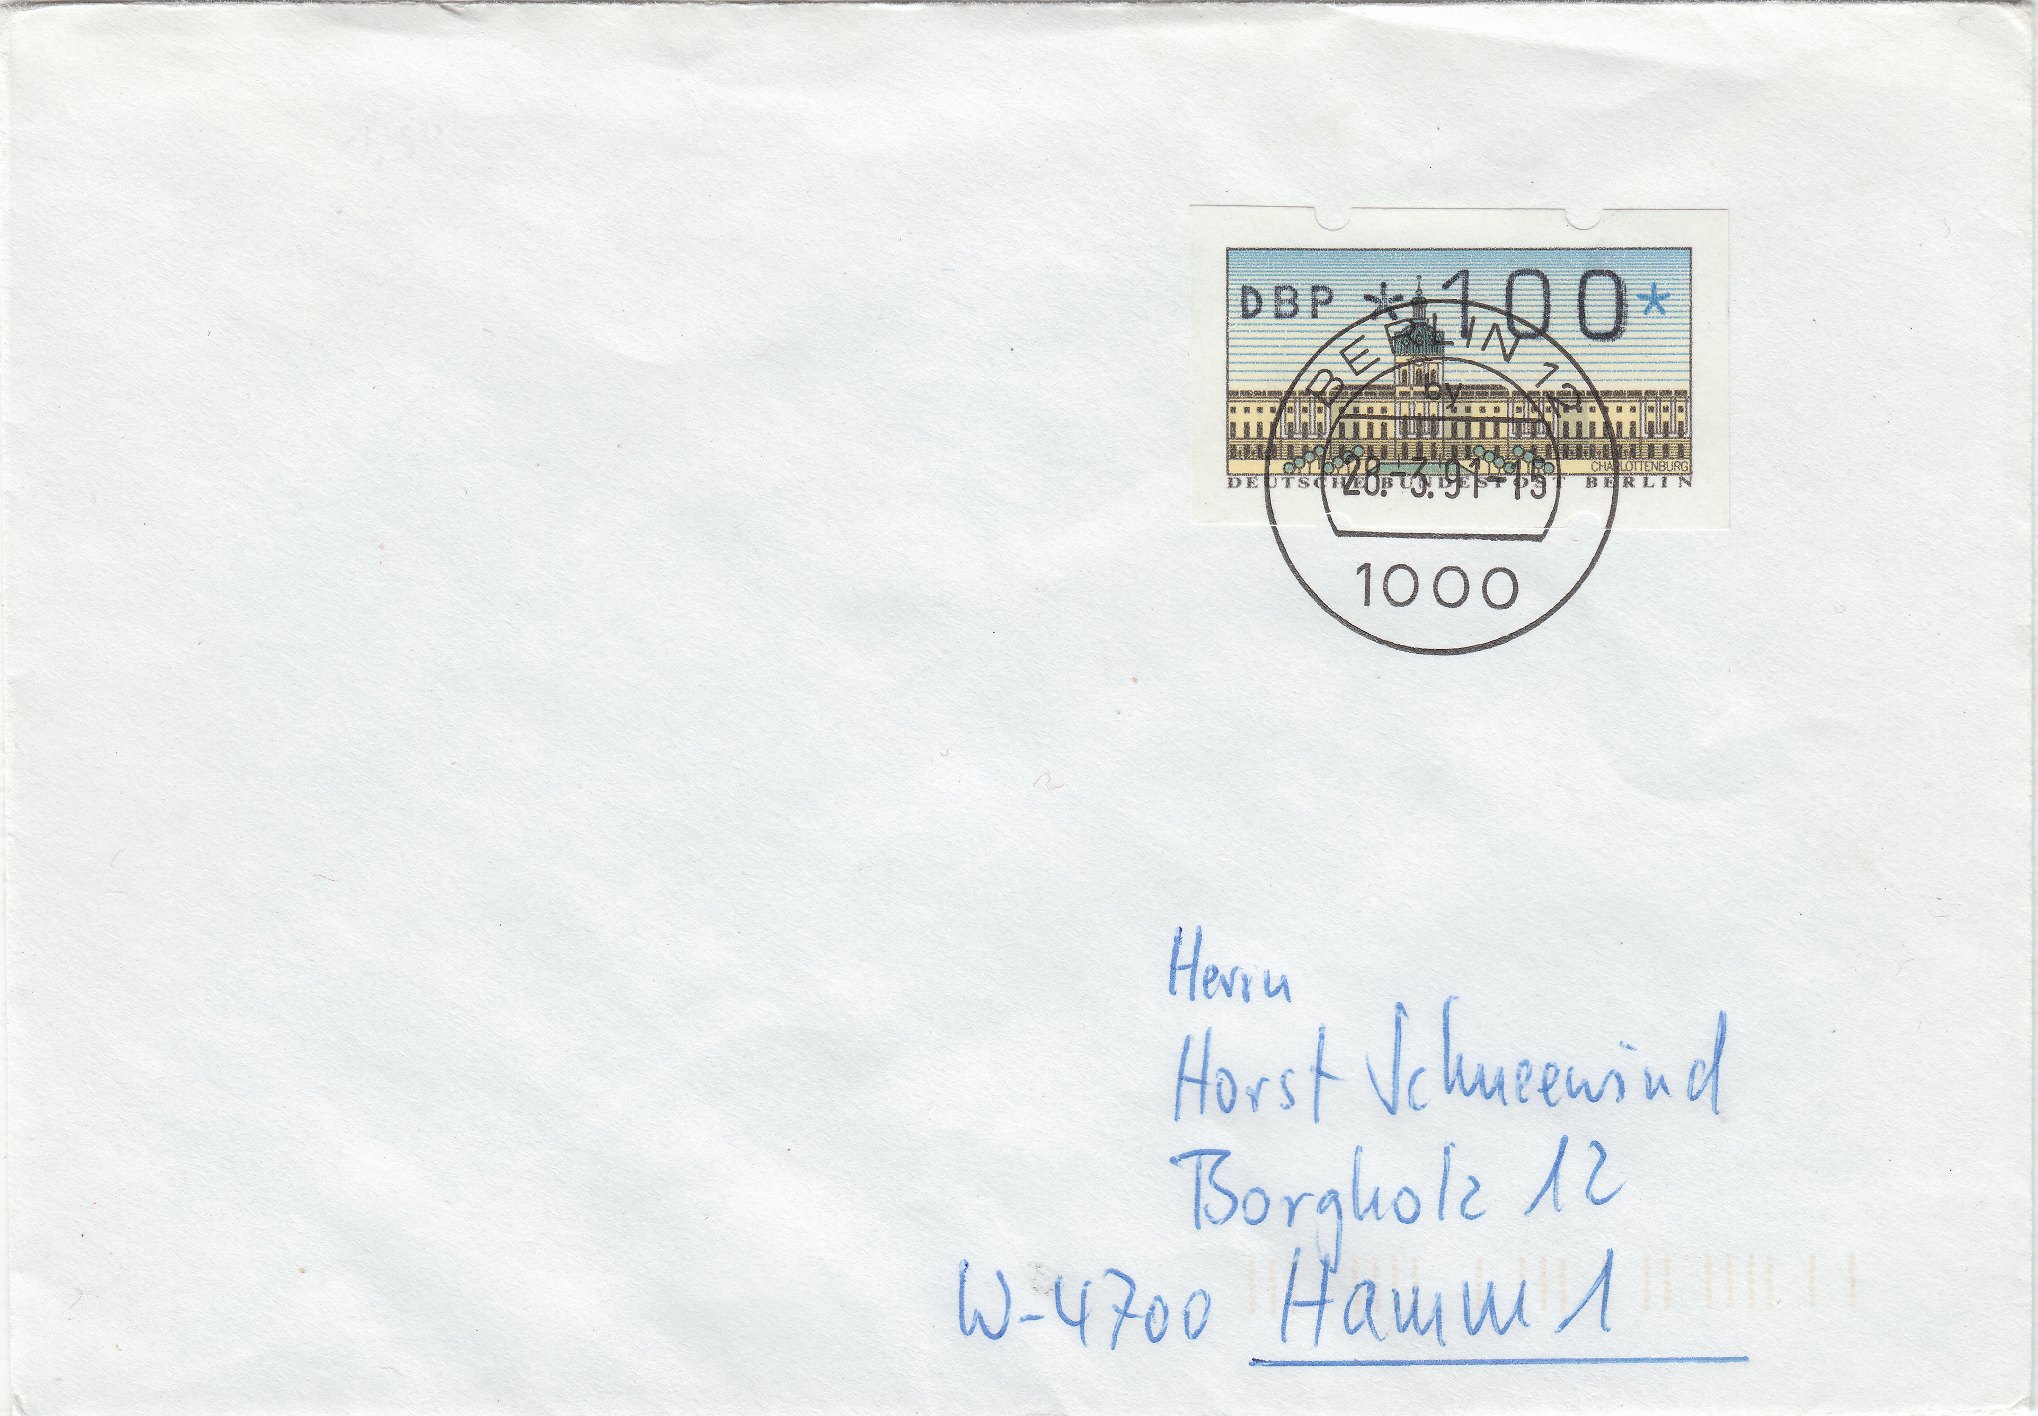 DBP *100*
CHARLOTTENBURG
DEUTSCHE BUNDESPOST BERLIN
BERLIN 12
by
28.-3.91-15
1000
Herrn
Horst Schneewind
Borgholz 12
W-4700 Hamm 1